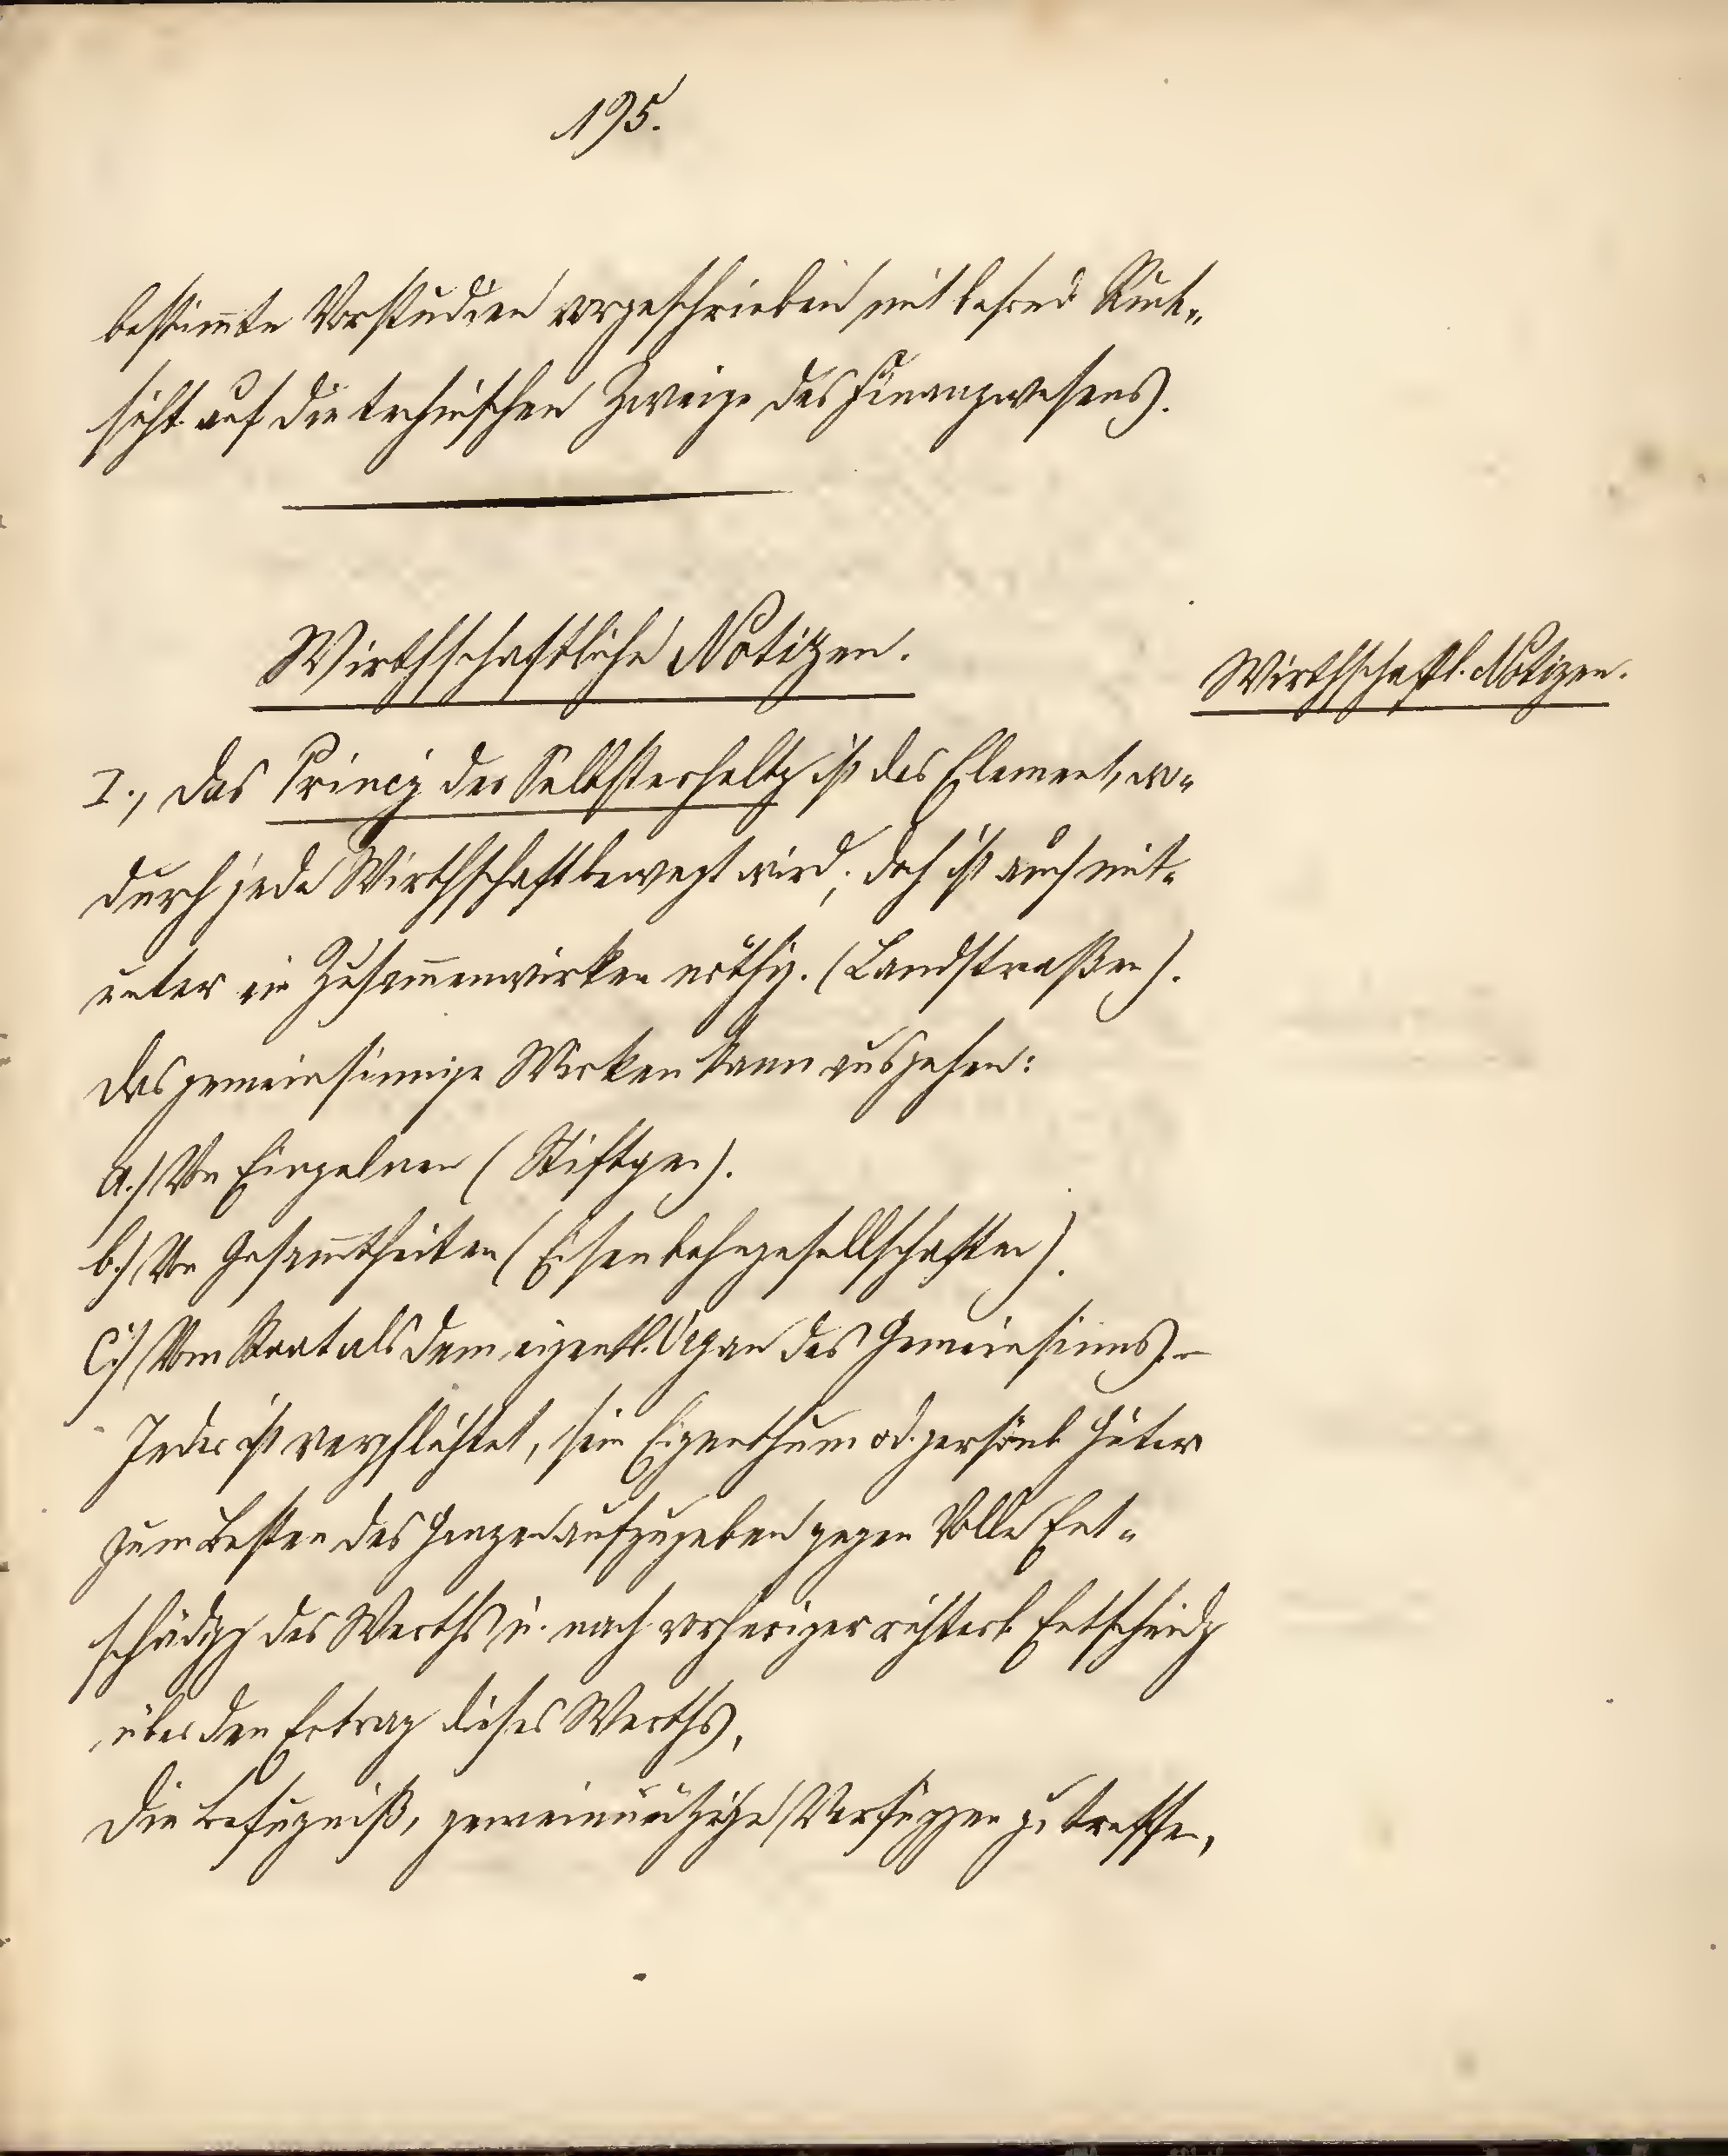 195.
bestim̄te Vorstudien vorgeschrieben mit besond. Rück„
sicht auf die technischen Zweige des Finanzwesens.
Wirthschaftliche Notizen.
Wirthschaftl. Notizen.
I., Das Princip der Selbsterhaltg ist das Element, wo„
durch jede Wirthschaft bewegt wird; doch ist auch mit„
unter ein Zusam̄enwirken nöthig. (Landstraßen).
Das gemeinsinnige Wirken kann ausgehen:
a.) Von Einzelnen (Stiftgen).
b.) Von Gesam̄theiten (Eisenbahngesellschaften).
c.) Vom Staat als dem eigentl. Organ des Gemeinsinns. –
Jeder ist verpflichtet, sein Eigenthum od. persönl. Güter
zum Besten des Ganzen aufzugeben gegen volle Ent„
schädigg des Werths u. nach vorheriger richterl. Entscheidg
über den Ertrag dieses Werths.
Die Befugniß, gemeinnützige Verfüggen zu treffen,